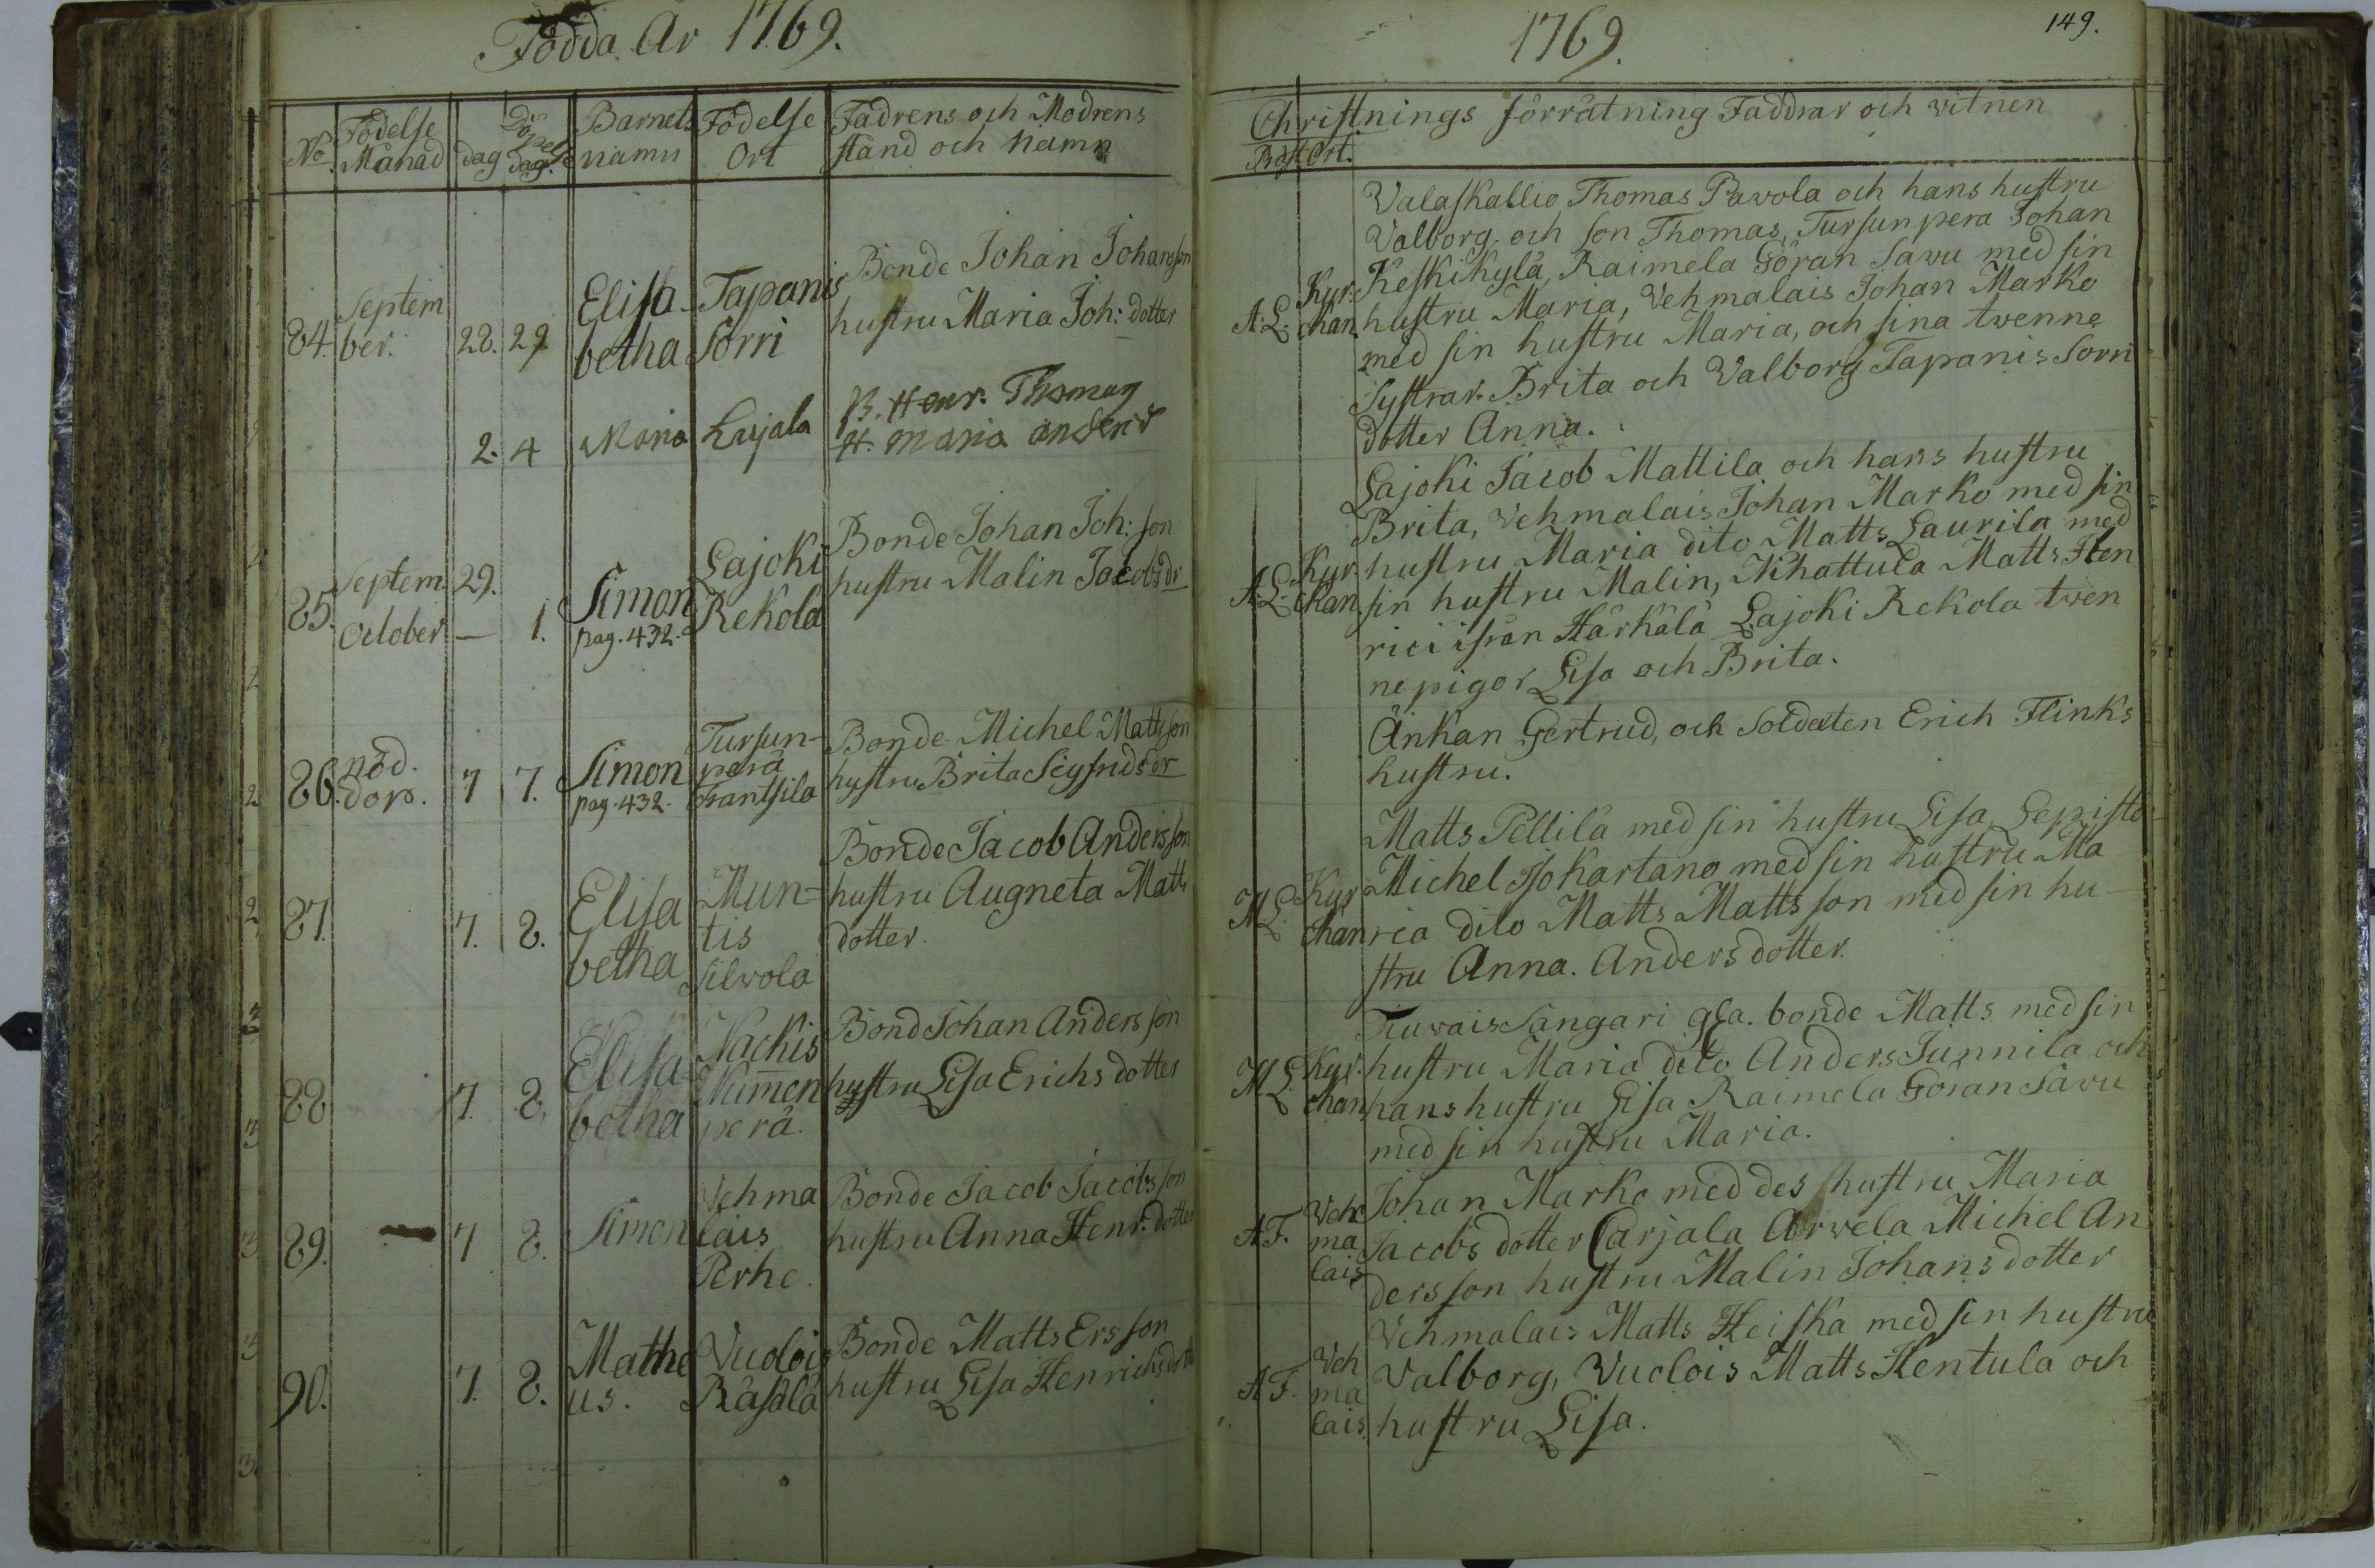 Födda År 1769.
No. Födelse Månad dag Döpelse dag. Barnets namn Födelse Ort Fadrens och Modrens stånd och namn
84. Septem ber. 28. 29. Elisa betha Tapanis Sorri Bonde Johan Johansson
hustru Maria Joh: dotter
2. 4 Maria Lujala B. Henr. Thomass
H. Maria Anders d
85. Septem. 29.
October — 1. Simon pag. 432. Lajoki Rekola Bonde Johan Joh: son
hustru Malin Jacobs dr
86. nöd. dop. 7 7. Simon pag. 432. Tursun-perä Frantsila Bonde Michel Matts son
hustru Brita Sigfrids dr
87. 7. 8. Elisa betha Mun=tis Silvola Bonde Jacob Anders son
hustru Augneta Matts
dotter.
88 7. 8. Elisa=betha Nachis Kumen perä. Bond Johan Anders son
hustru Lisa Erichs dotter
89. 7 8. Simon Vehma lais Perhe. Bonde Jacob Jacobs son
hustru Anna Henr. dotter
90. 7. 8. Mathe us. Vuolois Räsälä Bonde Matts Ers son
hustru Lisa Henrichs dottr
1769.
149.
Christnings förrätning Faddrar och vitnen
Präst Ort.
Valaskallio Thomas Pavola och hans hustru
Valborg och son Thomas, Tursunpera Johan
Keskikylä, Raimela Göran Savu med sin
A. L. Kyr. chan. hustru Maria, Vehmalais Johan Marko
med sin hustru Maria, och sina twenne
Systrar. Brita och Valborg Tapanis Sorri
dotter Anna.
Lajoki Jacob Mattila och hans hustru
Brita, Vehmalais Johan Marko med sin
hustru Maria dito Matts Laurila med
A. L. Kyr. chan. sin hustru Malin, Kihattula Matts Hen
rici ifrån Härkälä Lajoki Rekola twen
ne pigor Lisa och Brita.
Änkan Gertrud, och Soldaten Erich Flinks
hustru.
Matts Pellilä med sin hustru Lisa, Lepistö
Michel Isokartano med sin hustru Ma
M L. Kyr chan ria dito Matts Matts son med sin hu-
stru Anna. Anders dotter.
Tiuvais Sangari gla. bonde Matts med sin
hustru Maria dito Anders Junnila och
M L. Kyr. chan hans hustru Lisa Raimela Göran Savu
med sin hustru Maria.
Johan Marko med des hustru Maria
A F. Veh ma lais Jacobs dotter Carjala Arvela Michel An
ders son hustru Malin Johans dotter
Vehmalais Matts Heiska med sin hustru
A F. Veh ma lais. Valborg, Vuolois Matts Hentula och
hustru Lisa.